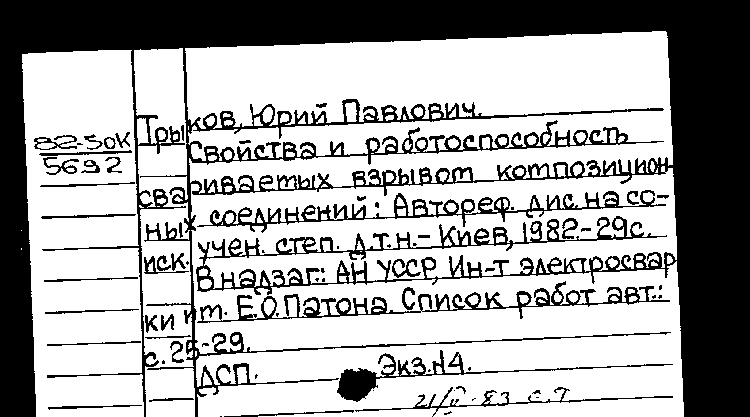 Трыков, Юрий Павлович.
82-5ок
5692
Свойства и работоспособность
свариваемых взрывом композицион-
ных соединений: Автореф. дис. на со-
иск. учен. степ. д.т.н.- Киев, 1982.-29с.
В надзаг.: АН УССР, Ин-т электросвар
ки им. Е.О.Патона. Список работ авт.:
с. 25-29.
ДСП. Экз.№4.
21/II-83 с.т